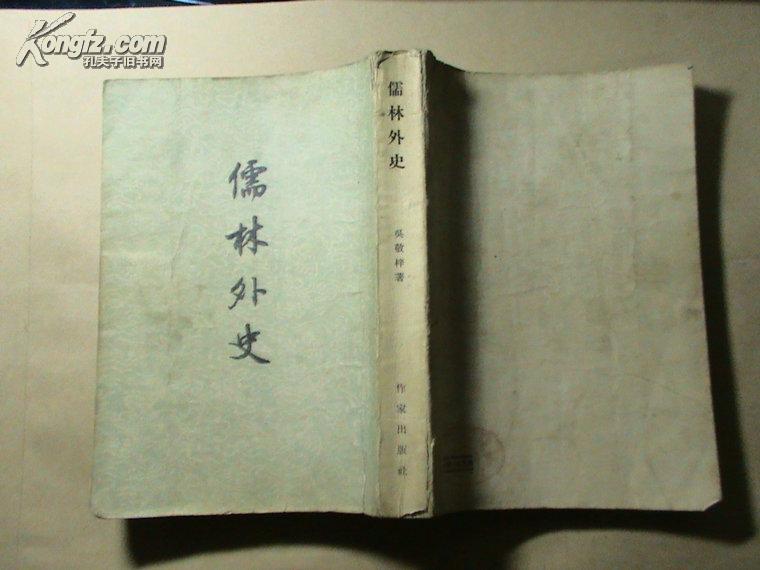 Kongfz.com
孔夫子旧书网
儒林外史
儒林外史
吳敬梓著
作家出版社